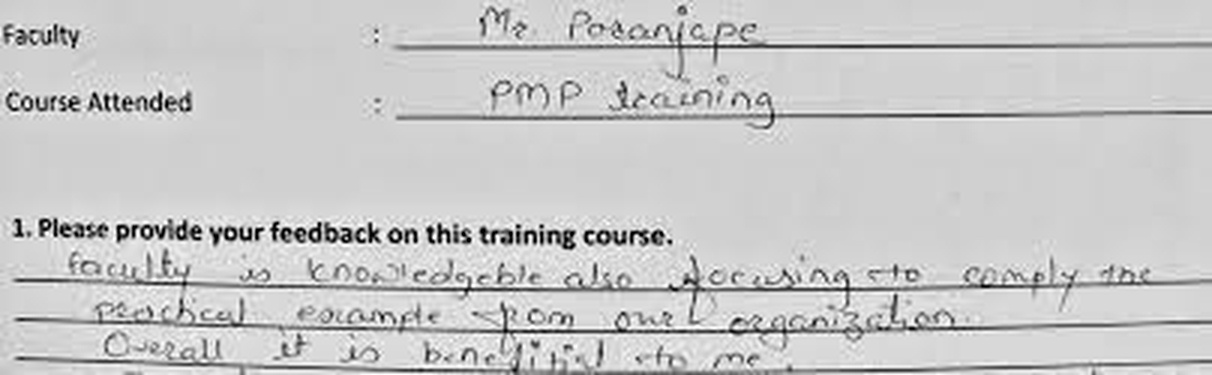 Faculty : Mr. Paranjape
Course Attended : PMP training
1. Please provide your feedback on this training course.
faculty is knowledgeble also focusing to comply the
practical example from our organization.
Overall it is benefitial to me.